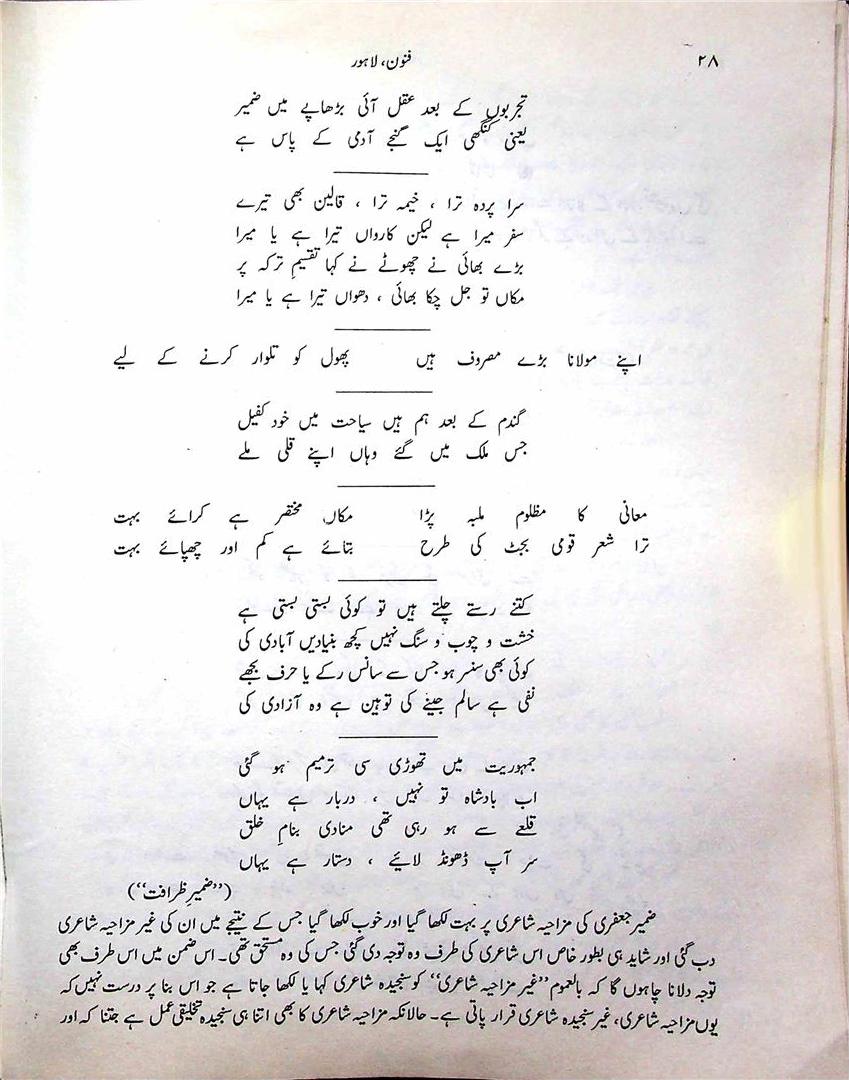 ۲۸ فنون، لاہور
تجربوں کے بعد عقل آئی بڑھاپے میں ضمیر
یعنی کنگھی ایک گنجے آدمی کے پاس ہے
سرا پردہ ترا ، خیمہ ترا ، قالین بھی تیرے
سفر میرا ہے لیکن کارواں تیرا ہے یا میرا
بڑے بھائی نے چھوٹے نے کہا تقسیمِ ترکہ پر
مکاں تو جل چکا بھائی ، دھواں تیرا ہے یا میرا
اپنے مولانا بڑے مصروف ہیں پھول کو تلوار کرنے کے لیے
گندم کے بعد ہم ہیں سیاحت میں خود کفیل
جس ملک میں گئے وہاں اپنے قلی ملے
معانی کا مظلوم ملبہ پڑا مکاں مختصر ہے کرائے بہت
ترا شعر قومی بجٹ کی طرح بتائے ہے کم اور چھپائے بہت
کتنے رستے چلتے ہیں تو کوئی بستی بستی ہے
خشت و چوب و سنگ نہیں کچھ بنیادیں آبادی کی
کوئی بھی سنسر ہو جس سے سانس رکے یا حرف بجھے
نفی ہے سالم جینے کی توہین ہے وہ آزادی کی
جمہوریت میں تھوڑی سی ترمیم ہو گئی
اب بادشاہ تو نہیں ، دربار ہے یہاں
قلعے سے ہو رہی تھی منادی بنامِ خلق
سر آپ ڈھونڈ لائیے ، دستار ہے یہاں
(”ضمیرِ ظرافت“)
ضمیر جعفری کی مزاحیہ شاعری پر بہت لکھا گیا اور خوب لکھا گیا جس کے نتیجے میں ان کی غیر مزاحیہ شاعری
دب گئی اور شاید ہی بطور خاص اس شاعری کی طرف وہ توجہ دی گئی جس کی وہ مستحق تھی۔ اس ضمن میں اس طرف بھی
توجہ دلانا چاہوں گا کہ بالعموم ”غیر مزاحیہ شاعری“ کو سنجیدہ شاعری کہا یا لکھا جاتا ہے جو اس بنا پر درست نہیں کہ
یوں مزاحیہ شاعری، غیر سنجیدہ شاعری قرار پاتی ہے۔ حالانکہ مزاحیہ شاعری کا بھی اتنا ہی سنجیدہ تخلیقی عمل ہے جتنا کہ اور